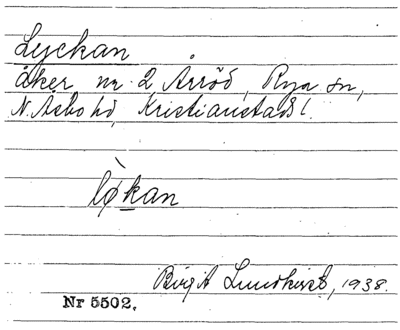 Lyckan
åker nr 2 Årröd, Rya sn,
N. Åsbo hd, Kristianstads l.
lø̀kan
Birgit Lundkvist, 1938.
Nr 5502.